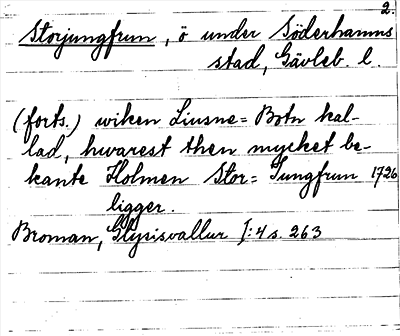 2.
Storjungfrun, ö under Söderhamns
stad, Gävleb. l.
(forts.) wiken Liusne= Botn kal-
lad, hwarest then mycket be-
kante Holmen Stor= Jungfrun 1726
ligger.
Broman, Glysisvallur I:4 s. 263